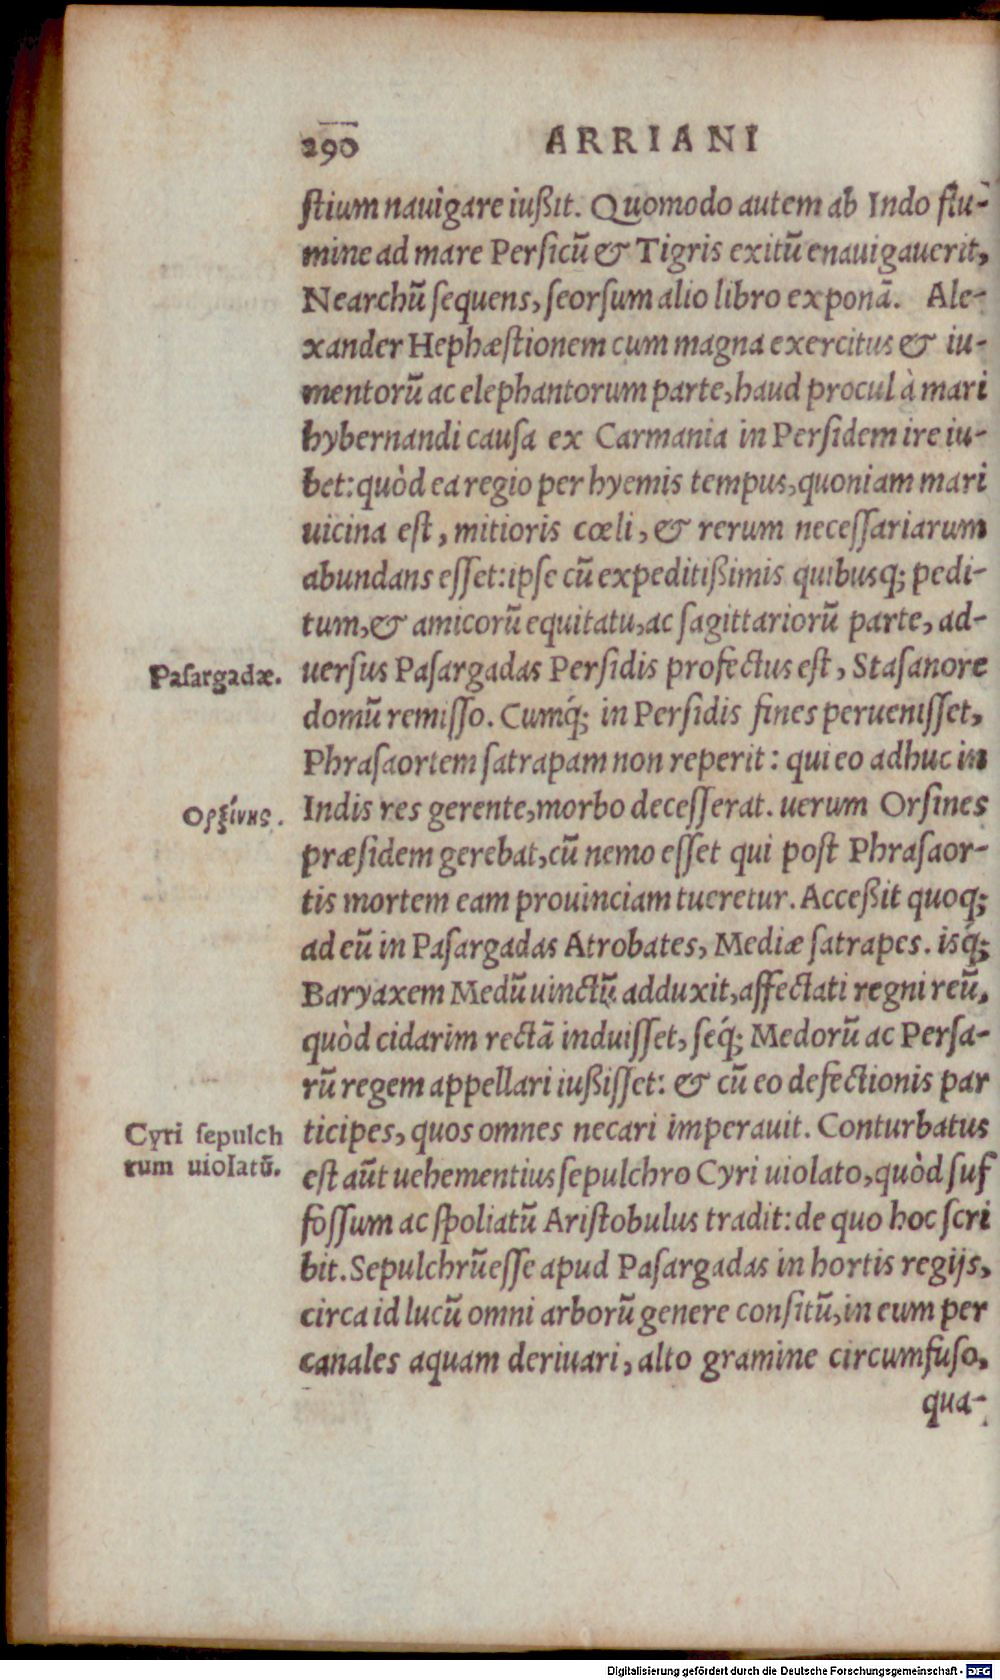 290 ARRIANI
stium nauigare iußit. Quomodo autem ab Indo flu-
mine ad mare Persicũ & Tigris exitũ enauigauerit,
Nearchũ sequens, seorsum alio libro exponã. Ale-
xander Hephæstionem cum magna exercitus & iu-
mentorũ ac elephantorum parte, haud procul à mari
hybernandi causa ex Carmania in Persidem ire iu-
bet: quòd ea regio per hyemis tempus, quoniam mari
uicina est, mitioris cœli, & rerum necessariarum
abundans esset: ipse cũ expeditißimis quibusq; pedi-
tum, & amicorũ equitatu, ac sagittariorũ parte, ad-
Pasargadæ.
uersus Pasargadas Persidis profectus est, Stasanore
domũ remisso. Cumq́; in Persidis fines peruenisset,
Phrasaortem satrapam non reperit: qui eo adhuc in
Ορξίνης.
Indis res gerente, morbo decesserat. uerum Orsines
præsidem gerebat, cũ nemo esset qui post Phrasaor-
tis mortem eam prouinciam tueretur. Acceßit quoq;
ad eũ in Pasargadas Atrobates, Mediæ satrapes. isq́;
Baryaxem Medũ uinctũ adduxit, affectati regni reũ,
quòd cidarim rectã induisset, seq́; Medorũ ac Persa-
rũ regem appellari iußisset: & cũ eo defectionis par
Cyri sepulch
rum uiolatũ.
ticipes, quos omnes necari imperauit. Conturbatus
est aũt uehementius sepulchro Cyri uiolato, quòd suf
fossum ac spoliatũ Aristobulus tradit: de quo hoc scri
bit. Sepulchrũ esse apud Pasargadas in hortis regijs,
circa id lucũ omni arborũ genere consitũ, in eum per
canales aquam deriuari, alto gramine circumfuso,
qua-
Digitalisierung gefördert durch die Deutsche Forschungsgemeinschaft - DFG